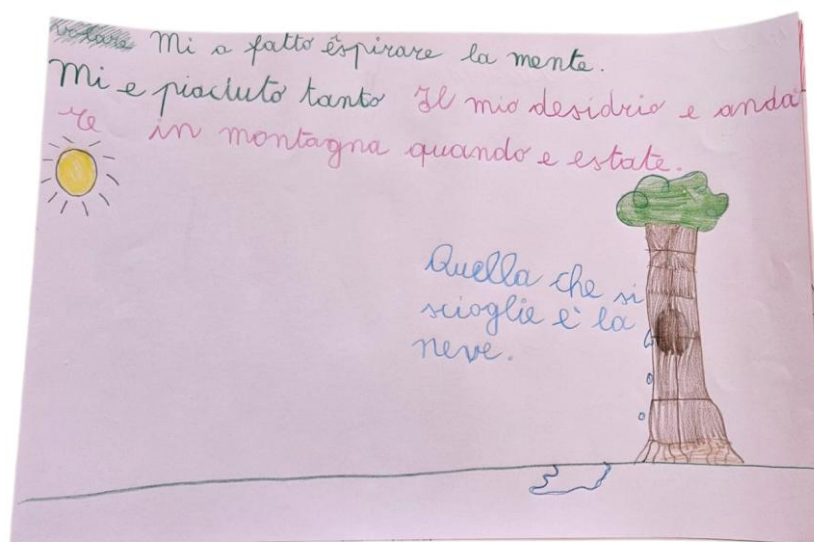 Mi a fatto espirare la mente.
Mi e piaciuto tanto Il mio desidrio e anda
re in montagna quando e estate.
Quella che si
scioglie e' la
neve.